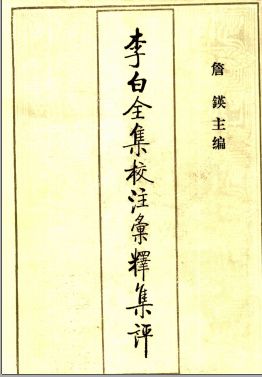 詹鍈主编
李白全集校注彙釋集评